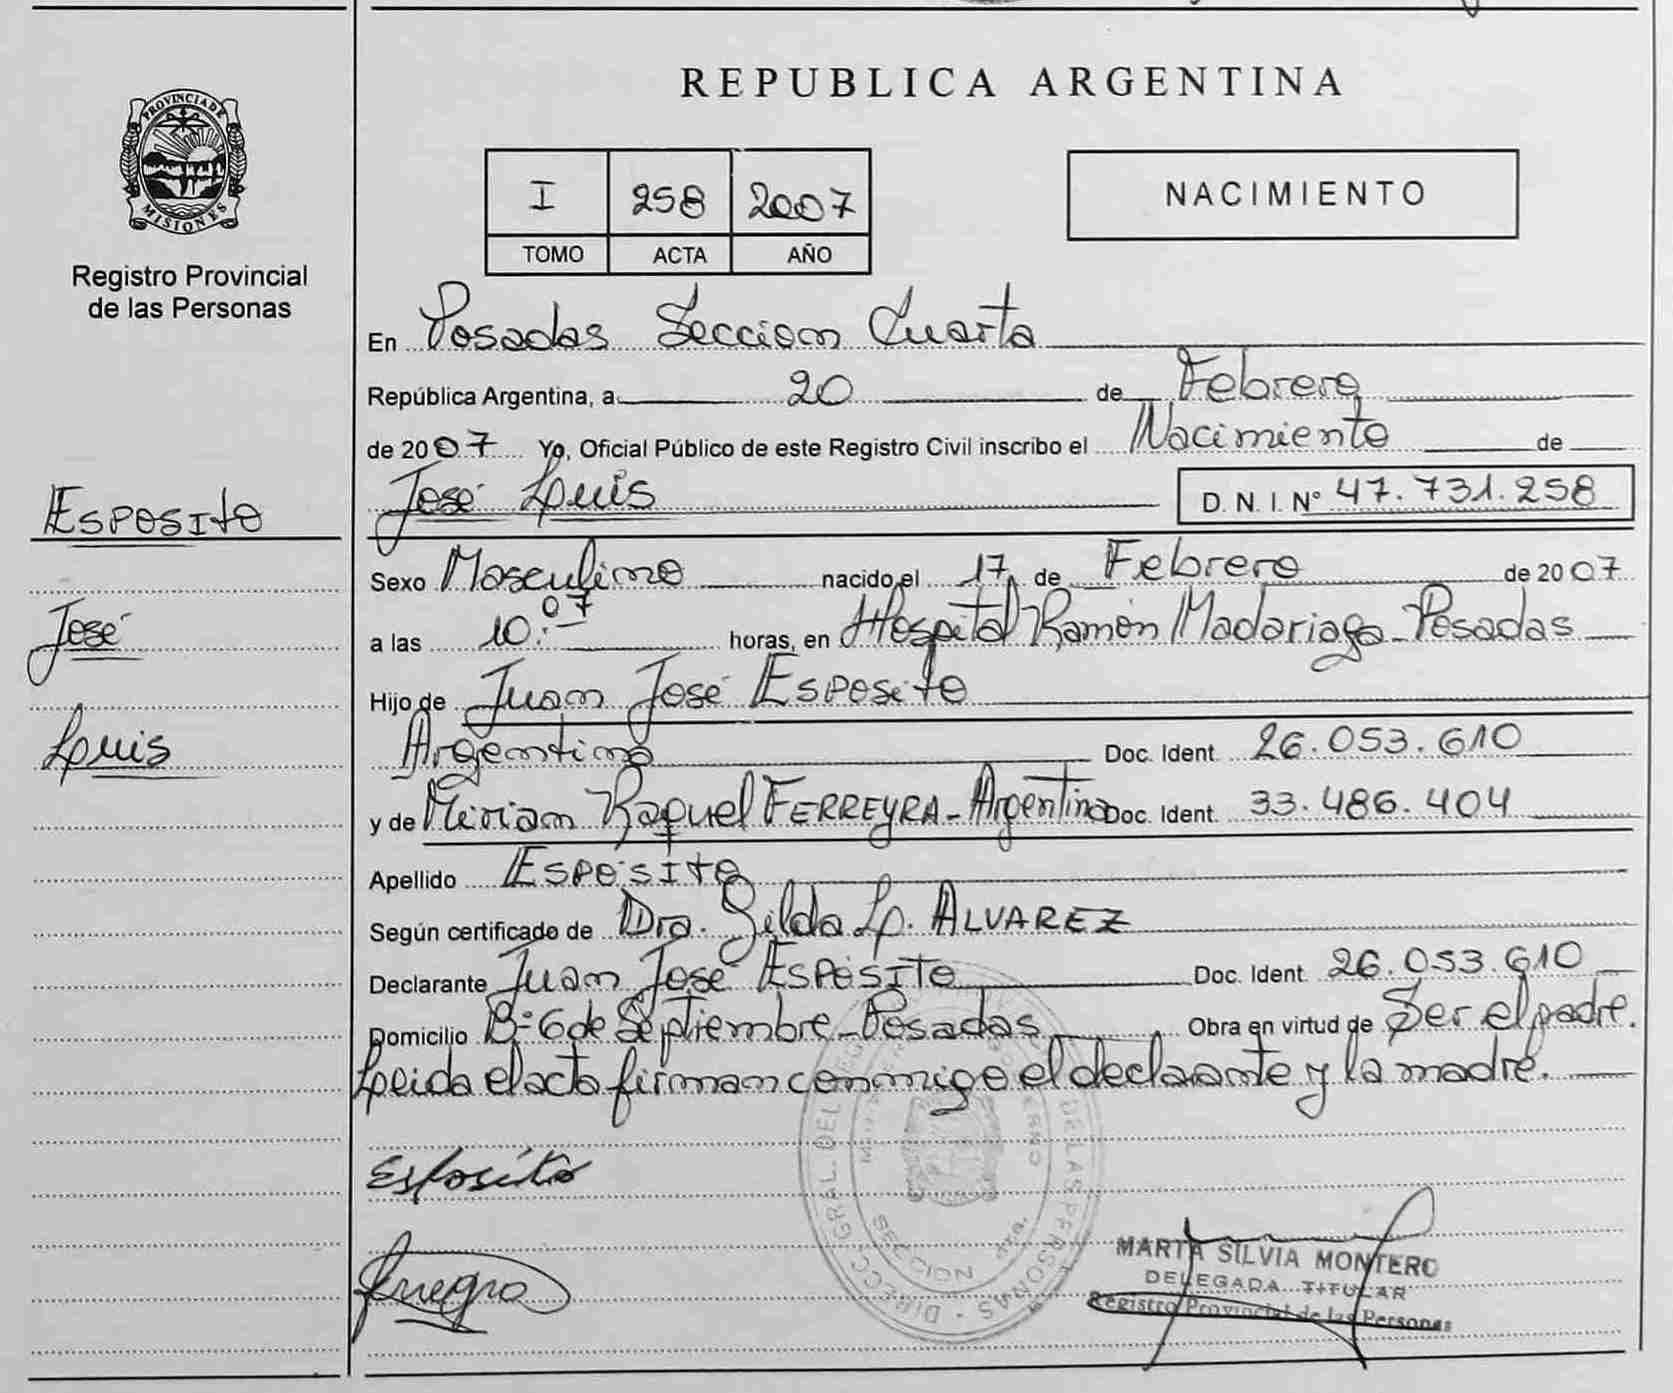 REPUBLICA ARGENTINA
PROVINCIA DE
MISIONES
Registro Provincial
de las Personas
I 258 2007
TOMO ACTA AÑO
NACIMIENTO
En Posadas Seccion Cuarta
República Argentina, a 20 de Febrero
de 2007 Yo, Oficial Público de este Registro Civil inscribo el Nacimiento de
José Luis D. N. I. Nº 47.731.258
ESPOSITO
José
Luis
Sexo Masculino nacido el 17 de Febrero de 2007
a las 10:07 horas, en Hospital Ramón Madariaga - Posadas
Hijo de Juan José ESPOSITO
Argentino Doc. Ident. 26.053.610
y de Miriam Raquel FERREYRA - Argentina Doc. Ident. 33.486.404
Apellido ESPOSITO
Según certificado de Dra. Gilda L. ALVAREZ
Declarante Juan José ESPOSITO Doc. Ident. 26.053.610
Domicilio Bº 6 de Septiembre - Posadas Obra en virtud de Ser el padre.
Leida el acta firman conmigo el declarante y la madre.
Esposito
MARTA SILVIA MONTERO
DELEGADA TITULAR
Registro Provincial de las Personas